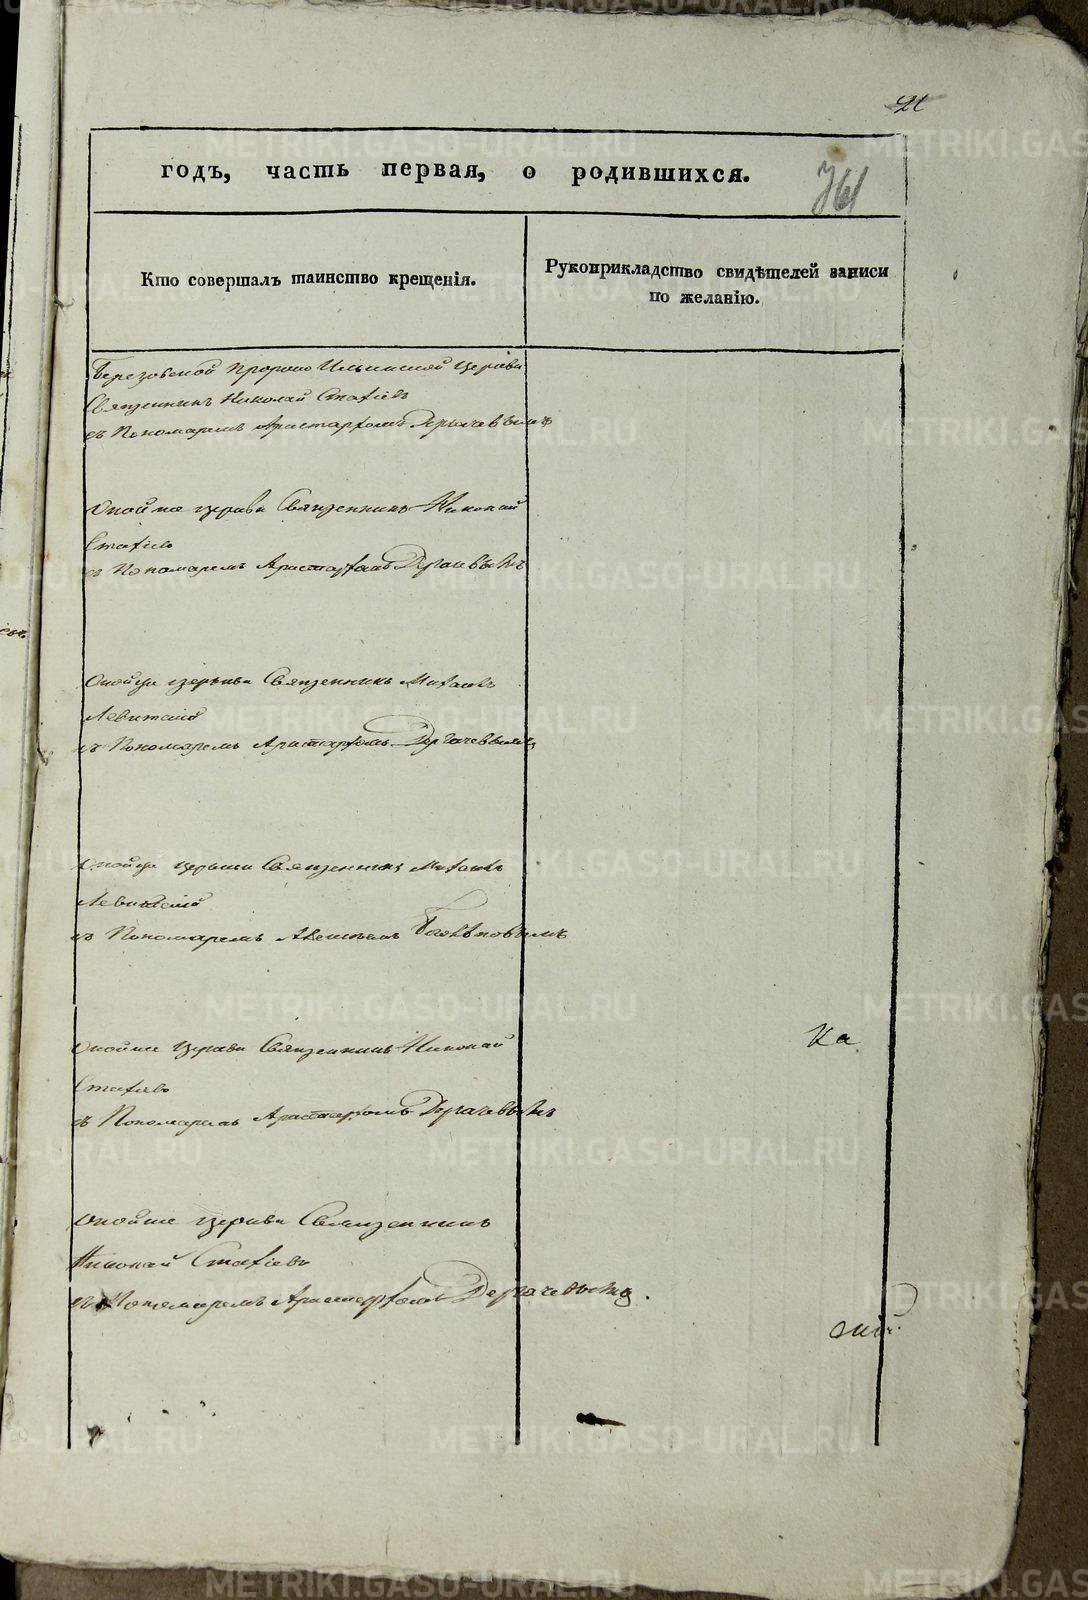 21
годъ, часть первая, о родившихся.
761
Кто совершалъ таинство крещенія.
Рукоприкладство свидѣтелей записи
по желанію.
Березовской Пророко Ильинской церкви
Священникъ Николай Стахіевъ
съ Пономаремъ Аристархомъ Дергачевымъ
Оной же церкви Священникъ Николай
Стахіевъ
съ Пономаремъ Аристархомъ Дергачевымъ
Оной же церкви Священникъ Михаилъ
Левитскій
съ Пономаремъ Аристархомъ Дергачевымъ
Оной же церкви Священникъ Михаилъ
Левитскій
съ Пономаремъ
Ка
Оной же церкви Священникъ Николай
Стахіевъ
съ Пономаремъ Аристархомъ Дергачевымъ
Оной же церкви Священникъ
Николай Стахіевъ
съ Пономаремъ Аристархомъ Дергачевымъ.
METRIKI.GASO-URAL.RU